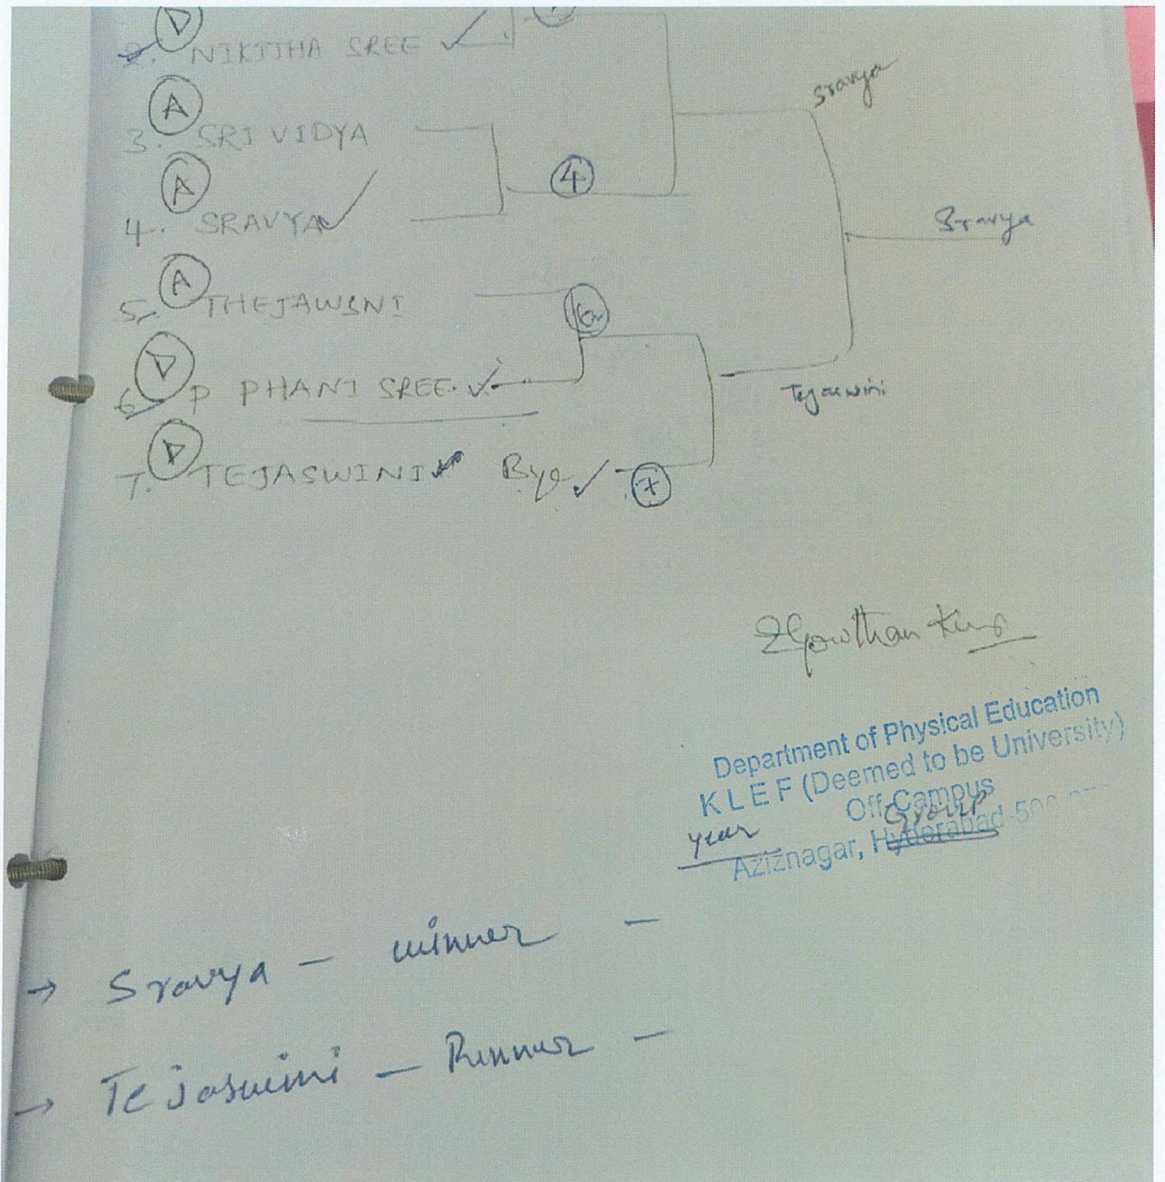 D
2. NIKITHA SREE ✓
A
3. SRI VIDYA
Sravya
A
4. SRAVYA ✓
4
Sravya
A
5. THEJAWSNI
6
D
6. P PHANI SREE. ✓
Tejaswini
D
7. TEJASWINI Bye ✓
7
Department of Physical Education
K L E F (Deemed to be University)
Off-Campus
year Group
Aziznagar, Hyderabad-500
→ Sravya - winner -
→ Tejaswini - Runner -